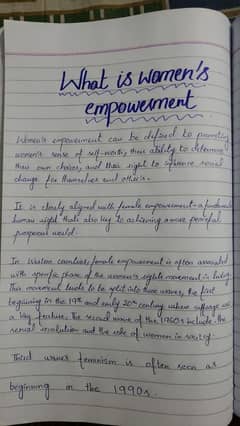 What is women's
empowerment
Women's empowerment can be defined to promoting
women's sense of self-worth, their ability to determine
their own choices, and their right to influence social
change for themselves and others.
It is closely aligned with female empowerment - a fundamental
human right that also key to achieving a more peaceful
prosperous world.
In Western countries, female empowerment is often associated
with specific phase of the women's rights movement in history
This movement tends to be split into three waves, the first
beginning in the 19th and early 20th century where suffrage was
a key feature. The second wave of the 1960s include the
sexual revolution and the role of women in society.
Third wave feminism is often seen as
beginning in the 1990s.